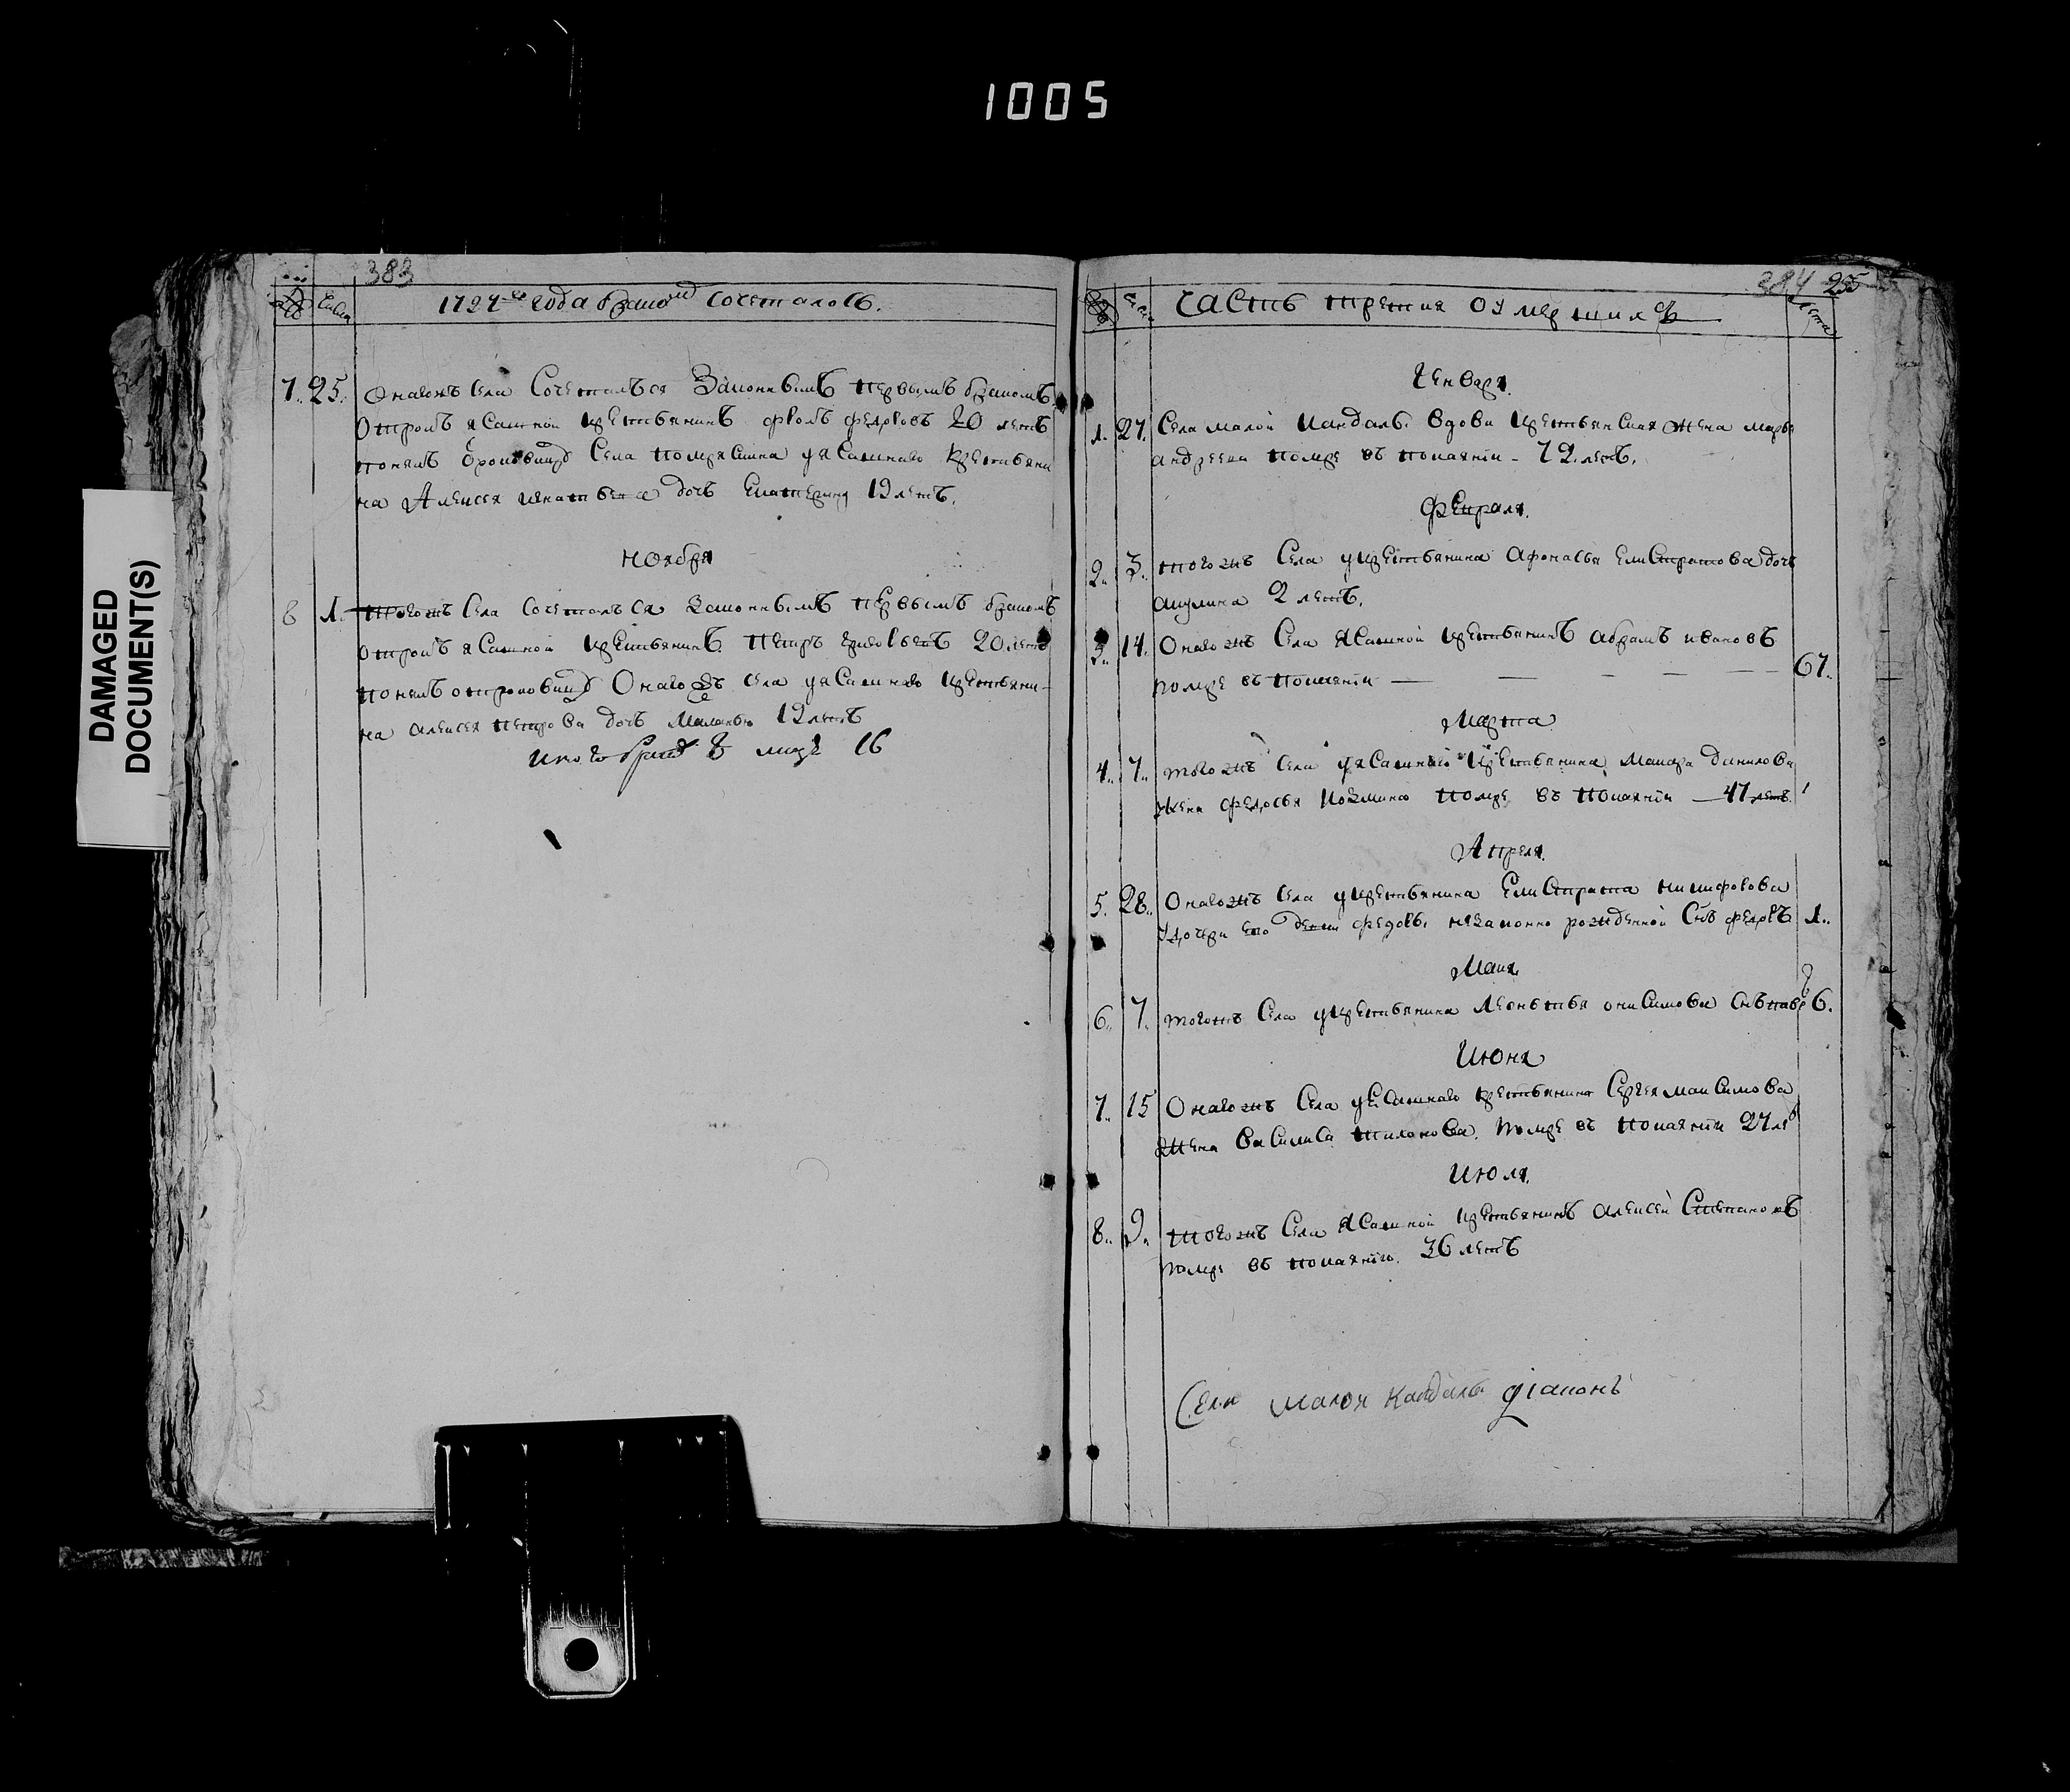 1005
DAMAGED
DOCUMENT(S)
383
Числа
года сочеталось.
7. 25. Онагожъ села Сочетался Законнымъ первымъ бракомъ
отрокъ ясашной крестьянинъ Фролъ Федоровъ 20 летъ
понялъ Села ясашнаго крестьяни
на Алексея Игнатьева дочь Екатерину 19 летъ.
ноября
8 1. тогожъ Села сочетался Законнымъ первымъ бракомъ
отрокъ ясашной крестьянинъ Петръ 20 летъ
понялъ отроковицу Онагожъ села ясашнаго крестьяни-
на алексея петрова дочь Маланью 19 летъ
итого браков 8 лицъ 16
384 25
часть третия о умерших
лета
Генваря
1. 27. Села малой Кандалы вдова крестьянская жена марья
андреева помре въ покаянiи - 72. летъ.
Февраля
2. 3. тогожъ Села у крестьянина Афонасья Елистратова дочь
акулина 2 летъ.
3. 14. Онагожъ Села Ясашной крестьянинъ абрамъ ивановъ
помре въ покаянiи — 67.
Марта
4. 7. тогожъ Села уясашнаго крестьянина Макара данилова
жена федосья Козмина помре въ покаянiи — 47 летъ.
Апреля
5. 28. Онагожъ Села у крестьянина Елистрата никифорова
удочери его незаконно рожденной Снъ 1..
Маия
6. 7. тогожъ Села у крестьянина Леонтья онисимова снъ 6.
Июня
7. 15 Онагожъ Села уясашнаго крестьянина Сергея максимова
жена Василиса тихонова. помре въ покаянiи 27 ле
Июля
8. тогожъ Села Ясашной крестьянинъ алексей Степановъ
помре въ покаянiи. 36 летъ
Села малой кандалы дiаконъ